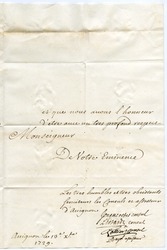 et que nous avons l'honneur
d'etre avec un tres profond respect
Monseigneur
De Votre Eminence
Les tres humbles et tres obeissants
serviteurs les Consuls et assesseur
d'avignon
consul
consul
Avignon le 10e xbre
1729.